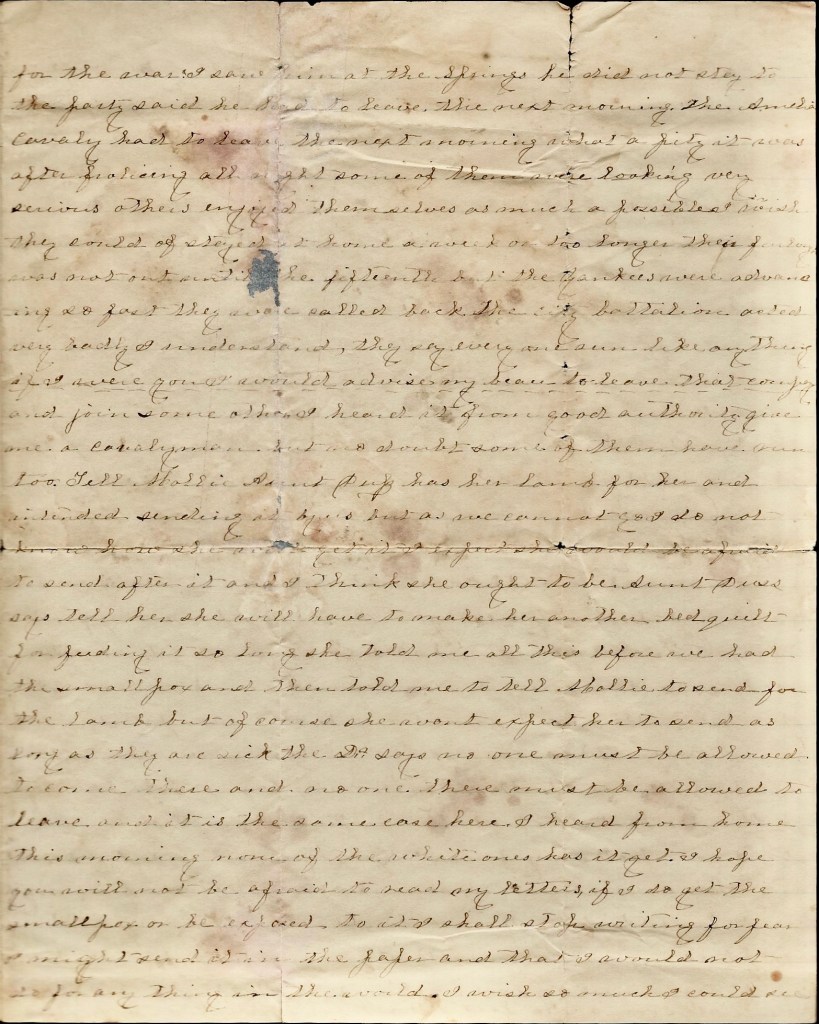 for the war. I saw him at the Springs he did not stey to
the party said he had to leave. the next morning. the Amelia
Cavaly had to leave the next morning what a pity it was
after frolicing all night some of them were looking very
serious others enjoyed themselves as much a possible I wish
they could of steyed at home a week or two longer their furlough
was not out until the fifteenth but the Yankees were advanc
ing so fast they were called back the city battalion acted
very badly I understand, they say every one run like any thing
if I were you I would advise my beau to leave that compny
and join some other I heard it from good authority give
me a cavalyman but no doubt some of them have run
too. Tell Mollie Aunt has her lamb for her and
intended sending it by us but as we cannot go I do not
know how she will get it I expect she would be afraid
to send after it and I think she ought to be Aunt
says tell her she will have to make her another bed quilt
for feeding it so long she told me all this before we had
the small pox and then told me to tell Mollie to send for
the lamb but of course she wont expect her to send as
long as they are sick the Dr says no one must be allowed
to come there and no one there must be allowed to
leave and it is the same case here. I heard from home
this morning none of the white ones has it yet. I hope
you will not be afraid to read my letters, if I do get the
smallpox or be exposed to it I shall stop writing for fear
I might send it in the paper and that I would not
do for any thing in the world. I wish so much I could see